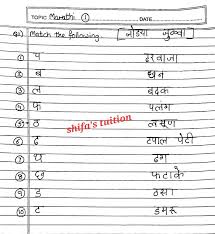 TOPIC Marathi ① DATE
Q1) Match the following. [जोड्या जुळवा]
① प दरवाजा
② ब छत्र
③ ल बदक
④ फ पलंग
⑤ ठ लसूण
⑥ ढ टपाल पेटी
⑦ द ढग
⑧ छ फटाके
⑨ ड ठसा
⑩ ट डमरू
shifa's tuition